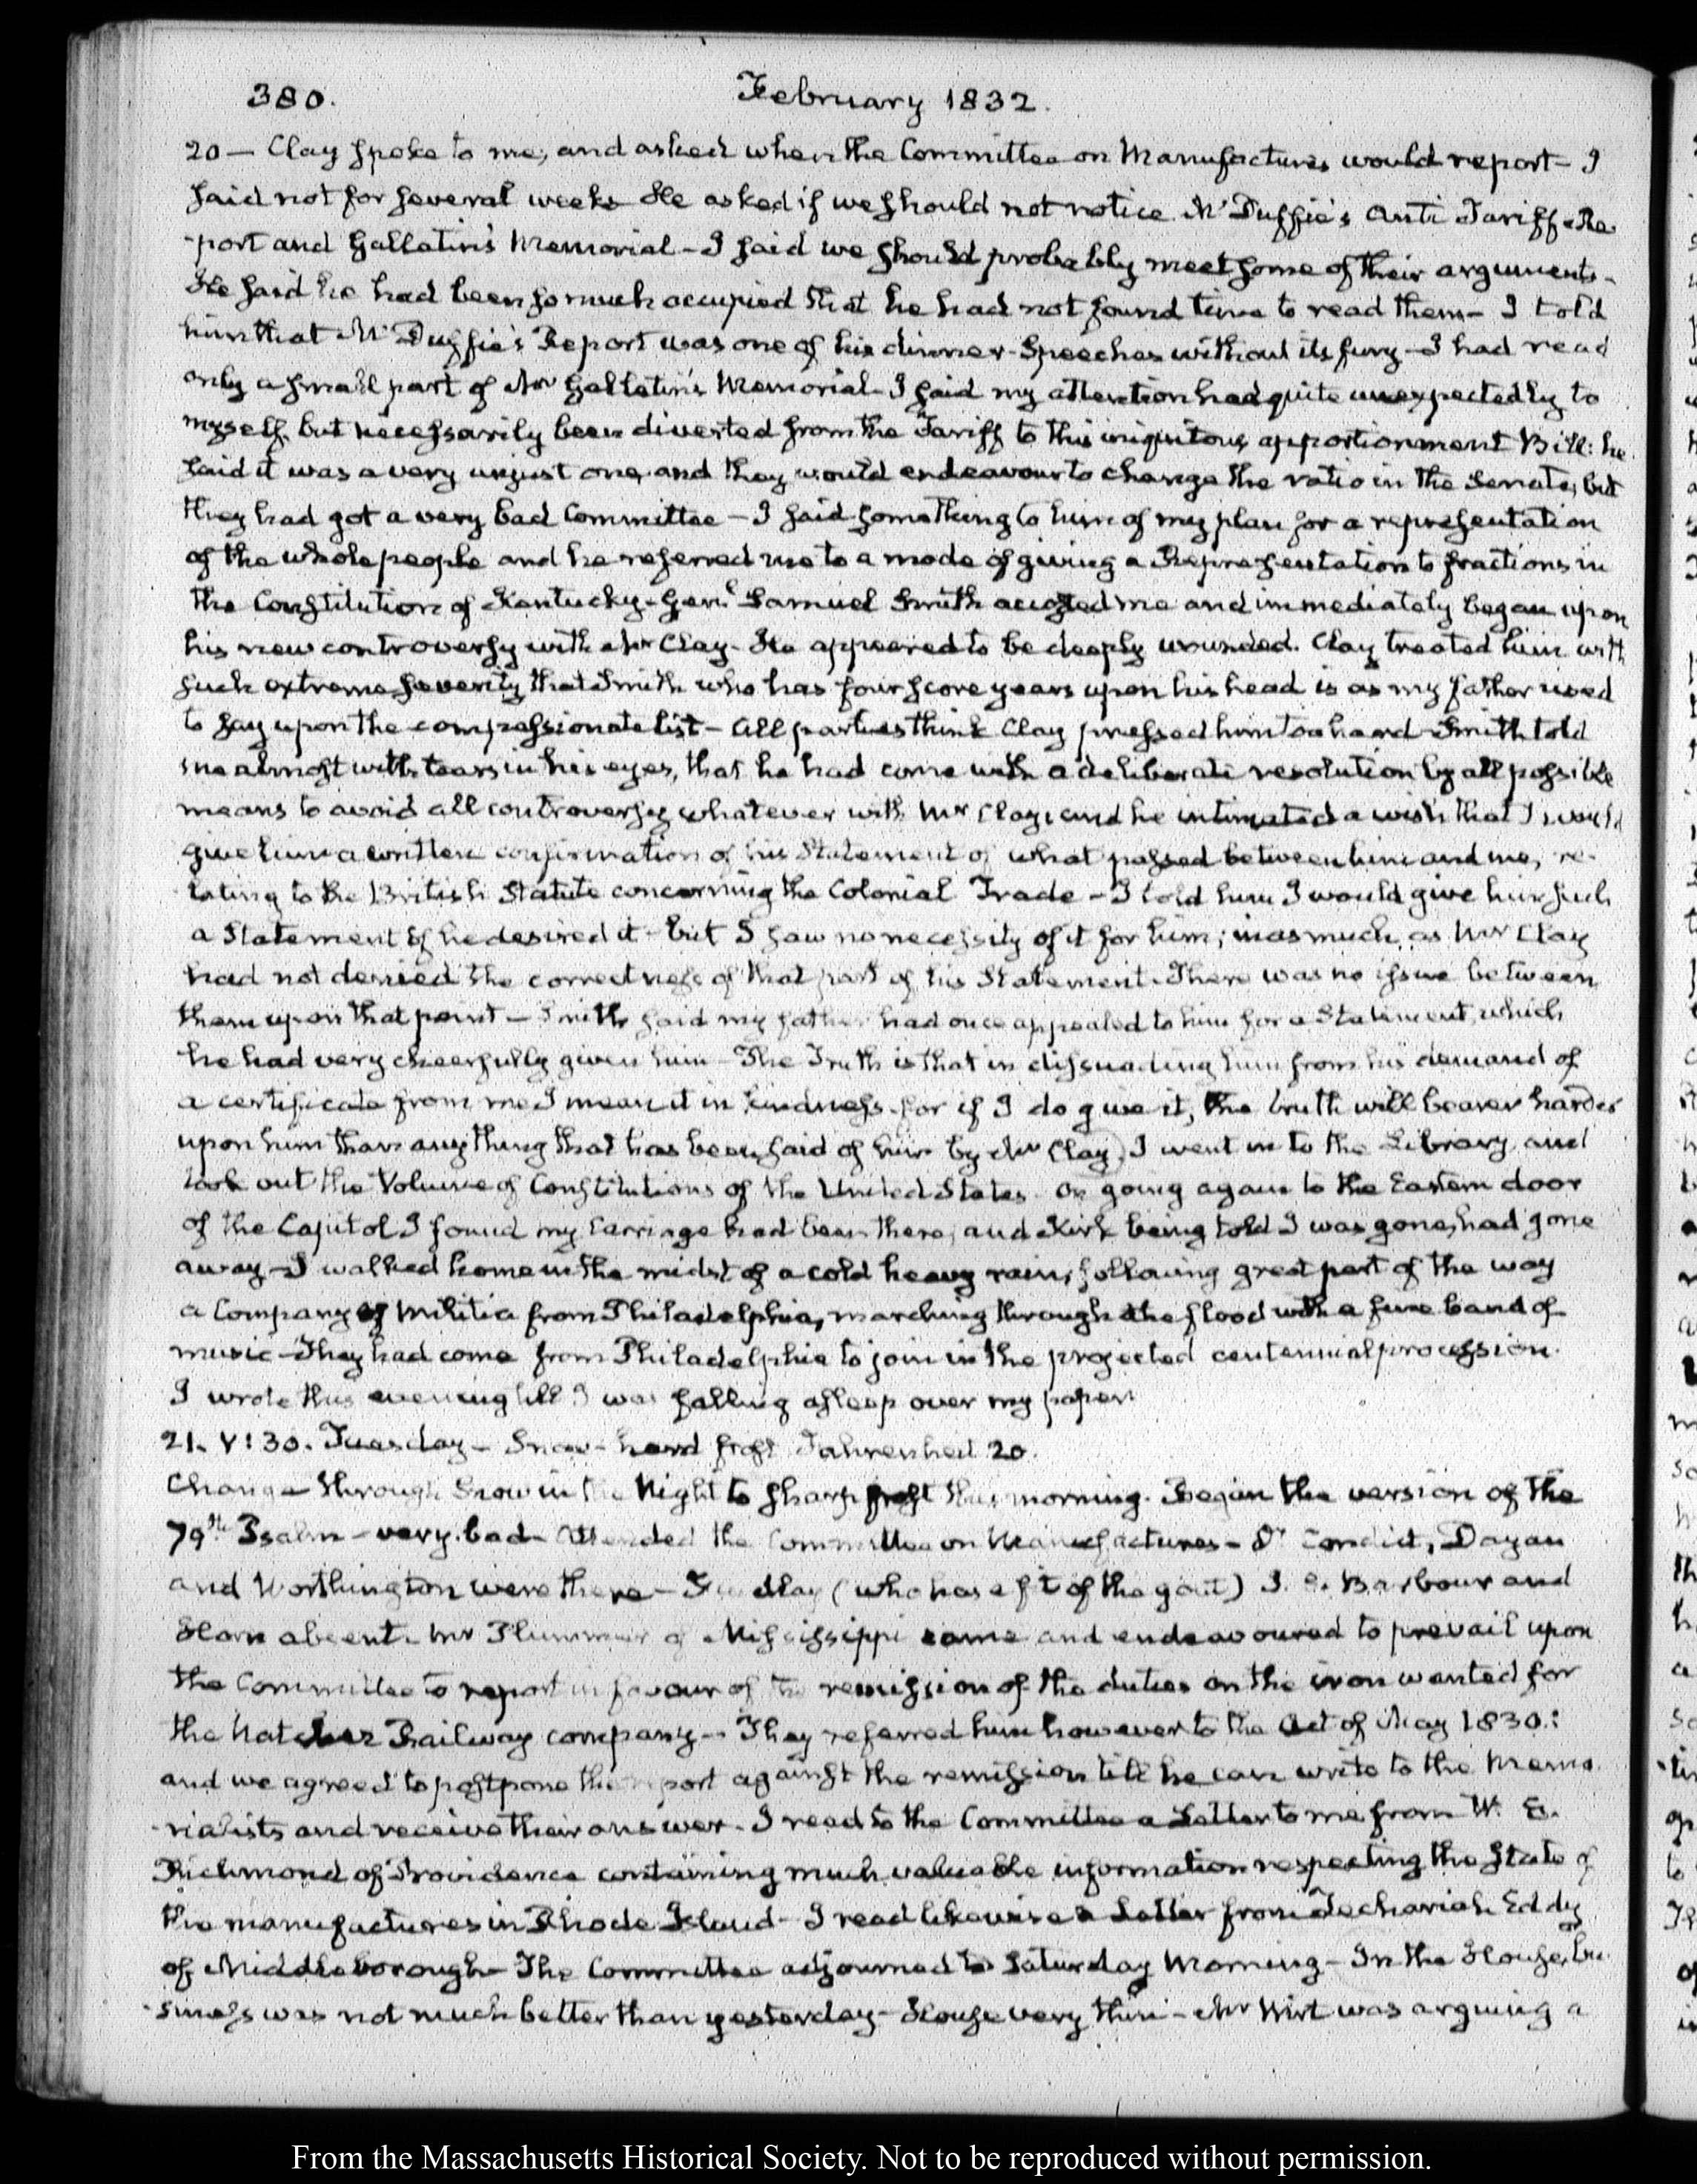 380. February 1832.
20— Clay spoke to me, and asked when the Committee on Manufactures would report— I
said not for several weeks He asked if we should not notice McDuffie's Anti Tariff Re-
-port and Gallatin's Memorial— I said we should probably meet some of their arguments.
He said he had been so much occupied that he had not found time to read them— I told
him that McDuffie's Report was one of his dinner-Speeches without its fury— I had read
only a small part of Mr Gallatin's Memorial— I said my attention had quite unexpectedly to
myself, but necessarily been diverted from the Tariff to this iniquitous apportionment Bill: he
said it was a very unjust one, and they would endeavour to change the ratio in the Senate, but
they had got a very bad Committee— I said something to him of my plan for a representation
of the whole people and he referred me to a mode of giving a Representation to fractions in
the Constitution of Kentucky— Genl Samuel Smith accosted me and immediately began upon
his new controversy with Mr Clay. He appeared to be deeply wounded. Clay treated him with
such extreme severity that Smith who has four score years upon his head is as my father used
to say upon the compassionate list— All parties think Clay pressed him too hard— Smith told
me almost with tears in his eyes, that he had come with a deliberate resolution by all possible
means to avoid all controversy whatever with Mr Clay, and he intimated a wish that I would
give him a written confirmation of his Statement of what passed between him and me, re-
-lating to the British Statute concerning the Colonial Trade— I told him I would give him such
a Statement if he desired it— but I saw no necessity of it for him; inasmuch as Mr Clay
had not denied the correctness of that part of his Statement. There was no issue between
them upon that point— Smith said my father had once appealed to him for a Statement, which
he had very cheerfully given him— The Truth is that in dissuading him from his demand of
a certificate from me I mean it in kindness. for if I do give it, the truth will bear harder
upon him than any thing that has been said of him by Mr Clay. I went in to the Library and
took out the Volume of Constitutions of the United States. On going again to the Eastern door
of the Capitol I found my Carriage had been there, and Kirk being told I was gone, had gone
away— I walked home in the midst of a cold heavy rain, following great part of the way
a Company of Militia from Philadelphia, marching through the flood with a fine band of
music— They had come from Philadelphia to join in the projected centennial procession.
I wrote this evening till I was falling asleep over my paper.
21. V:30. Tuesday— Snow— hard frost Fahrenheit 20.
Change through Snow in the Night to sharp frost this morning. Began the version of the
79th Psalm— very bad— Attended the Committee on Manufactures— Dr Condict, Dayan
and Worthington were there— Findlay (who has a fit of the gout) J. S. Barbour and
Horn absent. Mr Plummer of Mississippi came and endeavoured to prevail upon
the Committee to report in favour of the remission of the duties on the iron wanted for
the Natchez Railway company— They referred him however to the Act of May 1830.:
and we agreed to postpone the report against the remission till he can write to the Memo-
-rialists and receive their answer. I read to the Committee a Letter to me from W. E.
Richmond of Providence containing much valuable information respecting the State of
the manufactures in Rhode Island— I read likewise a Letter from Zechariah Eddy
of Middleborough— The Committee adjourned to Saturday Morning— In the House, bu-
-siness was not much better than yesterday— House very thin— Mr Wirt was arguing a
From the Massachusetts Historical Society. Not to be reproduced without permission.